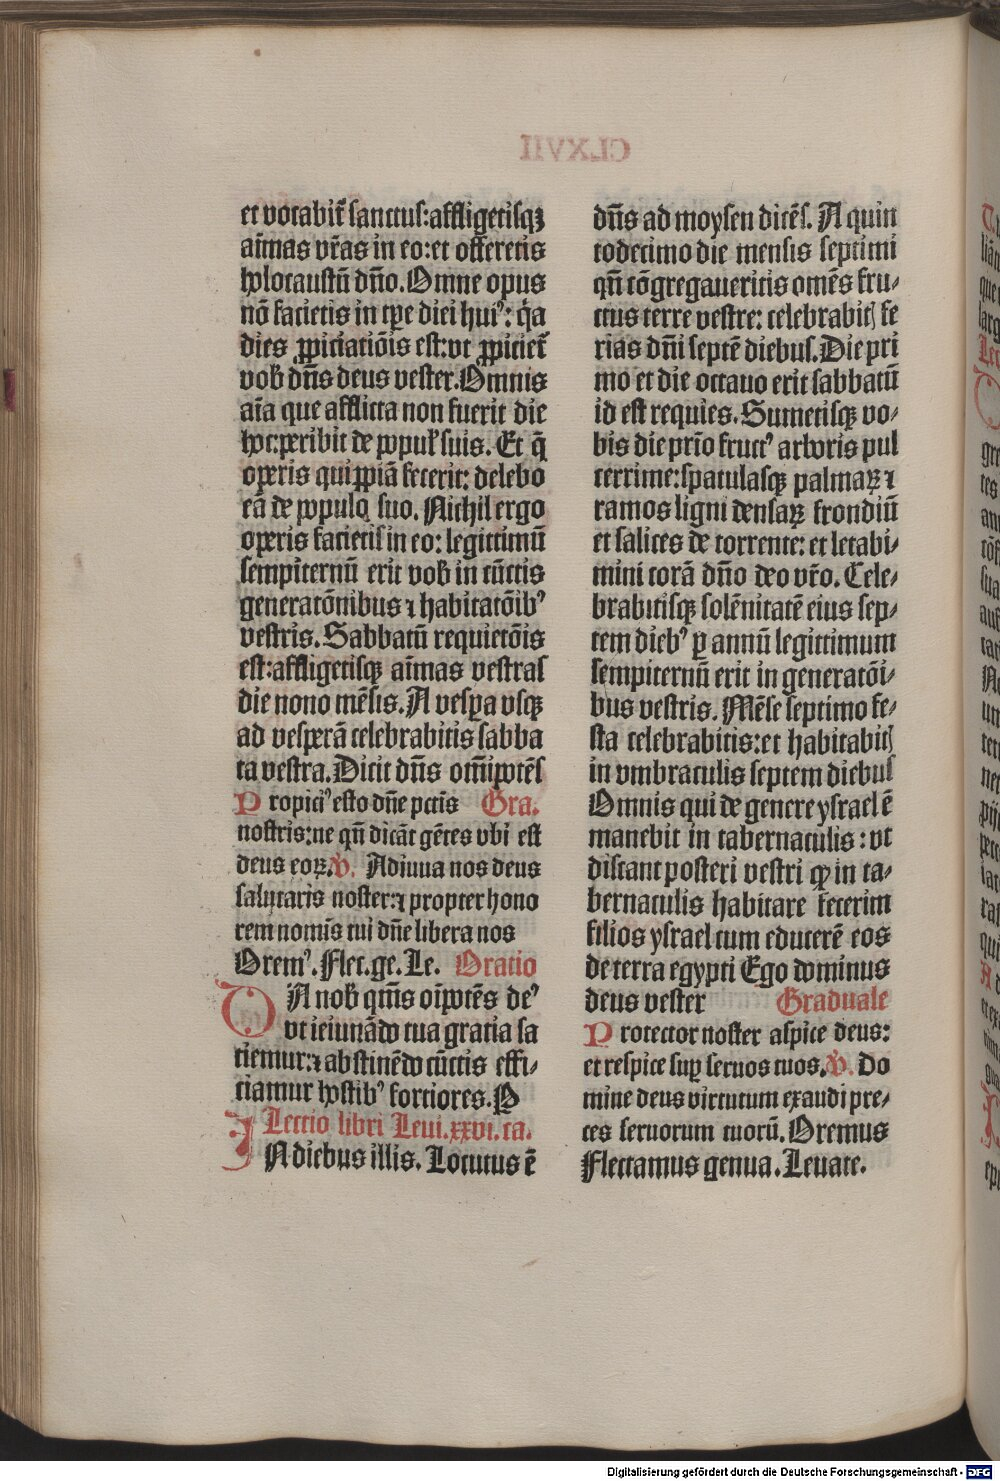 et vocabit᷑ sanctus:affligetisqꝫ
aīmas vr̄as in eo:et offeretis
holocaustū dn̄o. Omne opus
nō facietis in tꝑe diei huiꝰ: q̄a
dies ꝓpiciatiōis est:vt ꝓpiciet᷑
vob̄ dn̄s deus vester. Omnis
aīa que afflicta non fuerit die
hoc:peribit de popul̉ suis. Et q̄
operis quippiā fecerit: delebo
eā de populo suo. Nichil ergo
operis facietis in eo: legittimū
sempiternū erit vob̄ in cūctis
generatōnibus ⁊ habitatōibꝰ
vestris. Sabbatū requietōis
est:affligetisqꝫ aīmas vestras
die nono mēsis. A vespa vsqꝫ
ad vesperā celebrabitis sabba
ta vestra. Dicit dn̄s om̄ipotēs
Propiciꝰ esto dn̄e pctis Gra.
nostris:ne qn̄ dicāt gētes vbi est
deus eoꝝ. V̄. Adiuua nos deus
salutaris noster:⁊ propter hono
rem nomīs tui dn̄e libera nos
Oremꝰ. Flec.ge. Le. Oratio
DA nob̄ qm̄s oīpotēs deꝰ
vt ieiunādo tua gratia sa
tiemur:⁊ abstinēdo cūctis effi/
ciamur hostibꝰ fortiores. P
Lectio libri Leui.xxvi.ca.
IN diebus illis. Locutus ē
dn̄s ad moysen dicēs. A quin
todecimo die mensis septimi
qn̄ cōgregaueritis omēs fru/
ctus terre vestre: celebrabitꝭ fe
rias dn̄i septē diebus. Die pri
mo et die octauo erit sabbatū
id est requies. Sumetisqꝫ vo/
bis die prīo fructꝰ arboris pul
cerrime:spatulasqꝫ palmaꝝ ⁊
ramos ligni densaꝝ frondiū
et salices de torrente: et letabi/
mini corā dn̄o deo vr̄o. Cele/
brabitisqꝫ solēnitatē eius sep/
tem diebꝰ ꝑ annū legittimum
sempiternū erit in generatōi/
bus vestris. Mēse septimo fe/
sta celebrabitis:et habitabitꝭ
in vmbraculis septem diebus
Omnis qui de genere ysrael ē
manebit in tabernaculis: vt
discant posteri vestri ꝙ in ta/
bernaculis habitare fecerim
filios ysrael cum educerē eos
de terra egypti Ego dominus
deus vester Graduale
Protector noster aspice deus:
et respice suꝑ seruos tuos. V̄. Do
mine deus virtutum exaudi pre/
ces seruorum tuorū. Oremus
Flectamus genua. Leuate.
Digitalisierung gefördert durch die Deutsche Forschungsgemeinschaft - DFG